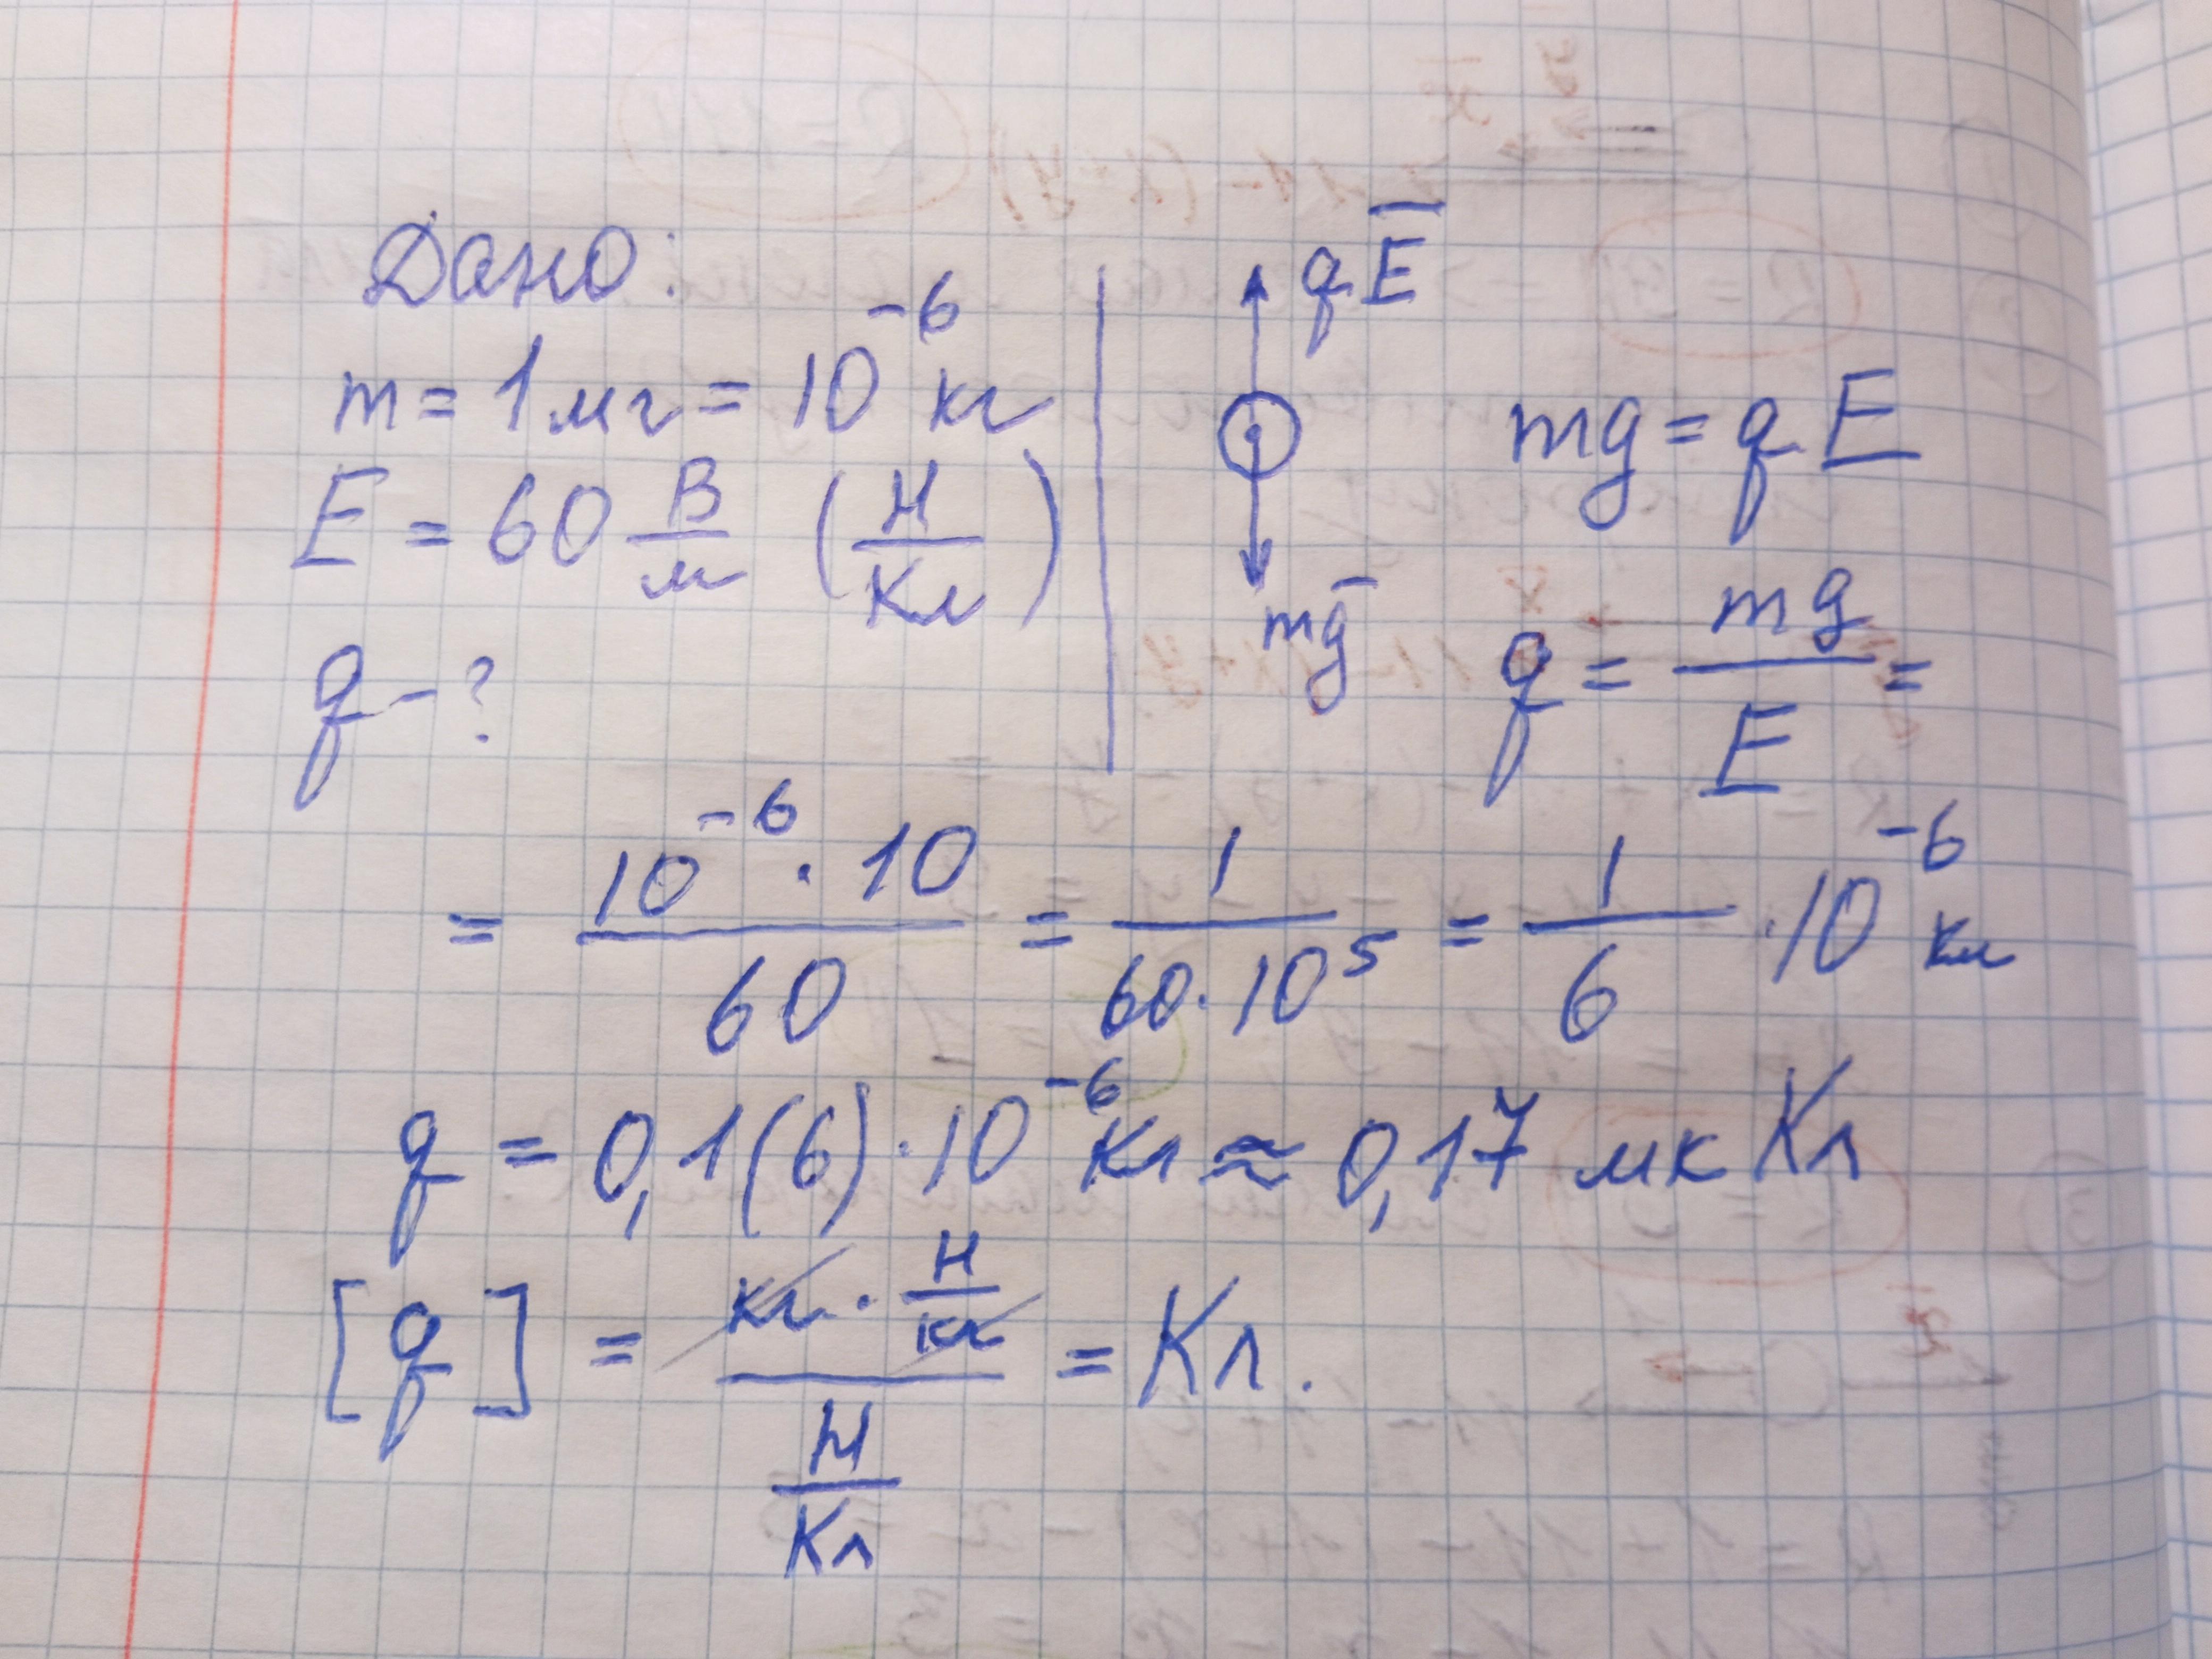 Дано:
m = 1 мг = 10⁻⁶ кг
E = 60 В/м (Н/Кл)
q - ?
qE̅
mg̅
mg = qE
q = mg/E =
= 10⁻⁶ · 10 / 60 = 1 / 60 · 10⁵ = 1/6 · 10⁻⁶ Кл
q = 0,1(6) · 10⁻⁶ Кл ≈ 0,17 мкКл
[q] = кг · Н/кг / Н/Кл = Кл.